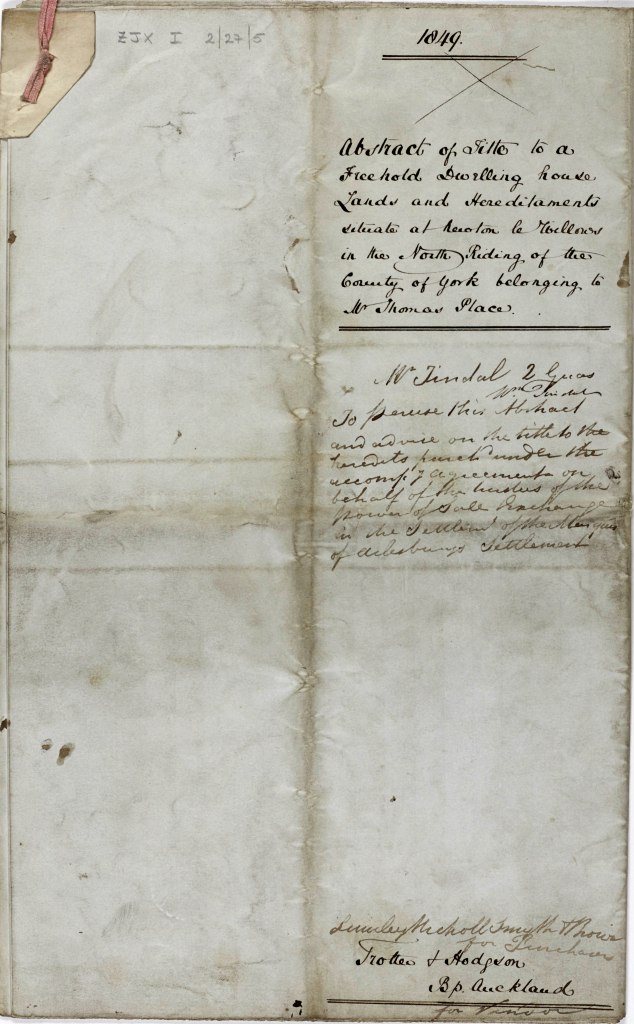 ZJX I 2/27/5
1849.
Abstract of Title to a
Freehold Dwelling house
Lands and Hereditaments
situate at Newton le Willows
in the North Riding of the
County of York belonging to
Mr Thomas Place.
Mr Tindal 2 Guas
Wm Tindal
To peruse this Abstract
and advise on the title to the
heredits purchd under the
accompg agreement on
behalf of the trustees of the
Power of Sale & Exchange
in the Settlemt of the Marquis
of Ailesburys Settlement
Nicholl Smyth &
for Purchasers
Trotter & Hodgson
Bp. Auckland
for Vendor